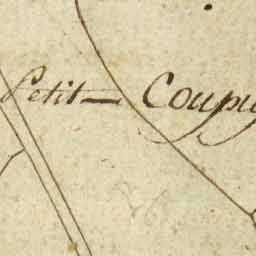 Petit Coupu